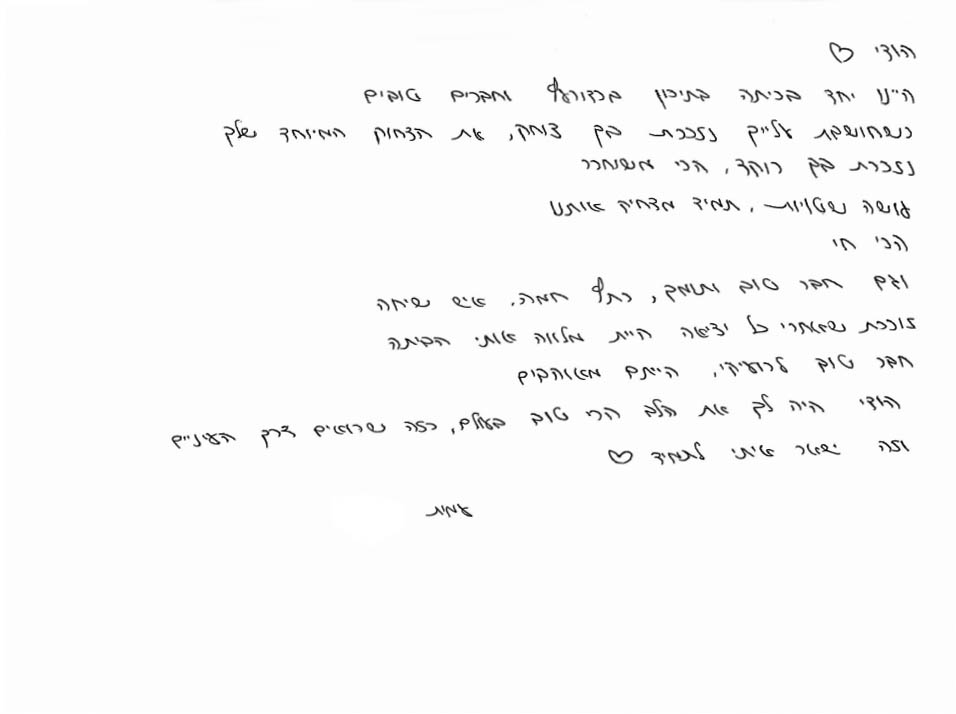 הודי ♡
היינו יחד בכיתה בתיכון בכדורעף וחברים טובים
כשחושבת עלייך נזכרת בך צוחק, את הצחוק המיוחד שלך
נזכרת בך רוקד, הכי משוחרר
עושה שטויות, תמיד מצחיק אותנו
הכי חי
וגם חבר טוב ותומך, כתף חמה, איש שיחה
זוכרת שאחרי כל יציאה היית מלווה אותי הביתה
חבר טוב לרועיקי, הייתם מאוהבים
הודי היה לך את הלב הכי טוב בעולם, כזה שרואים דרך העיניים
וזה ישאר איתי לתמיד ♡